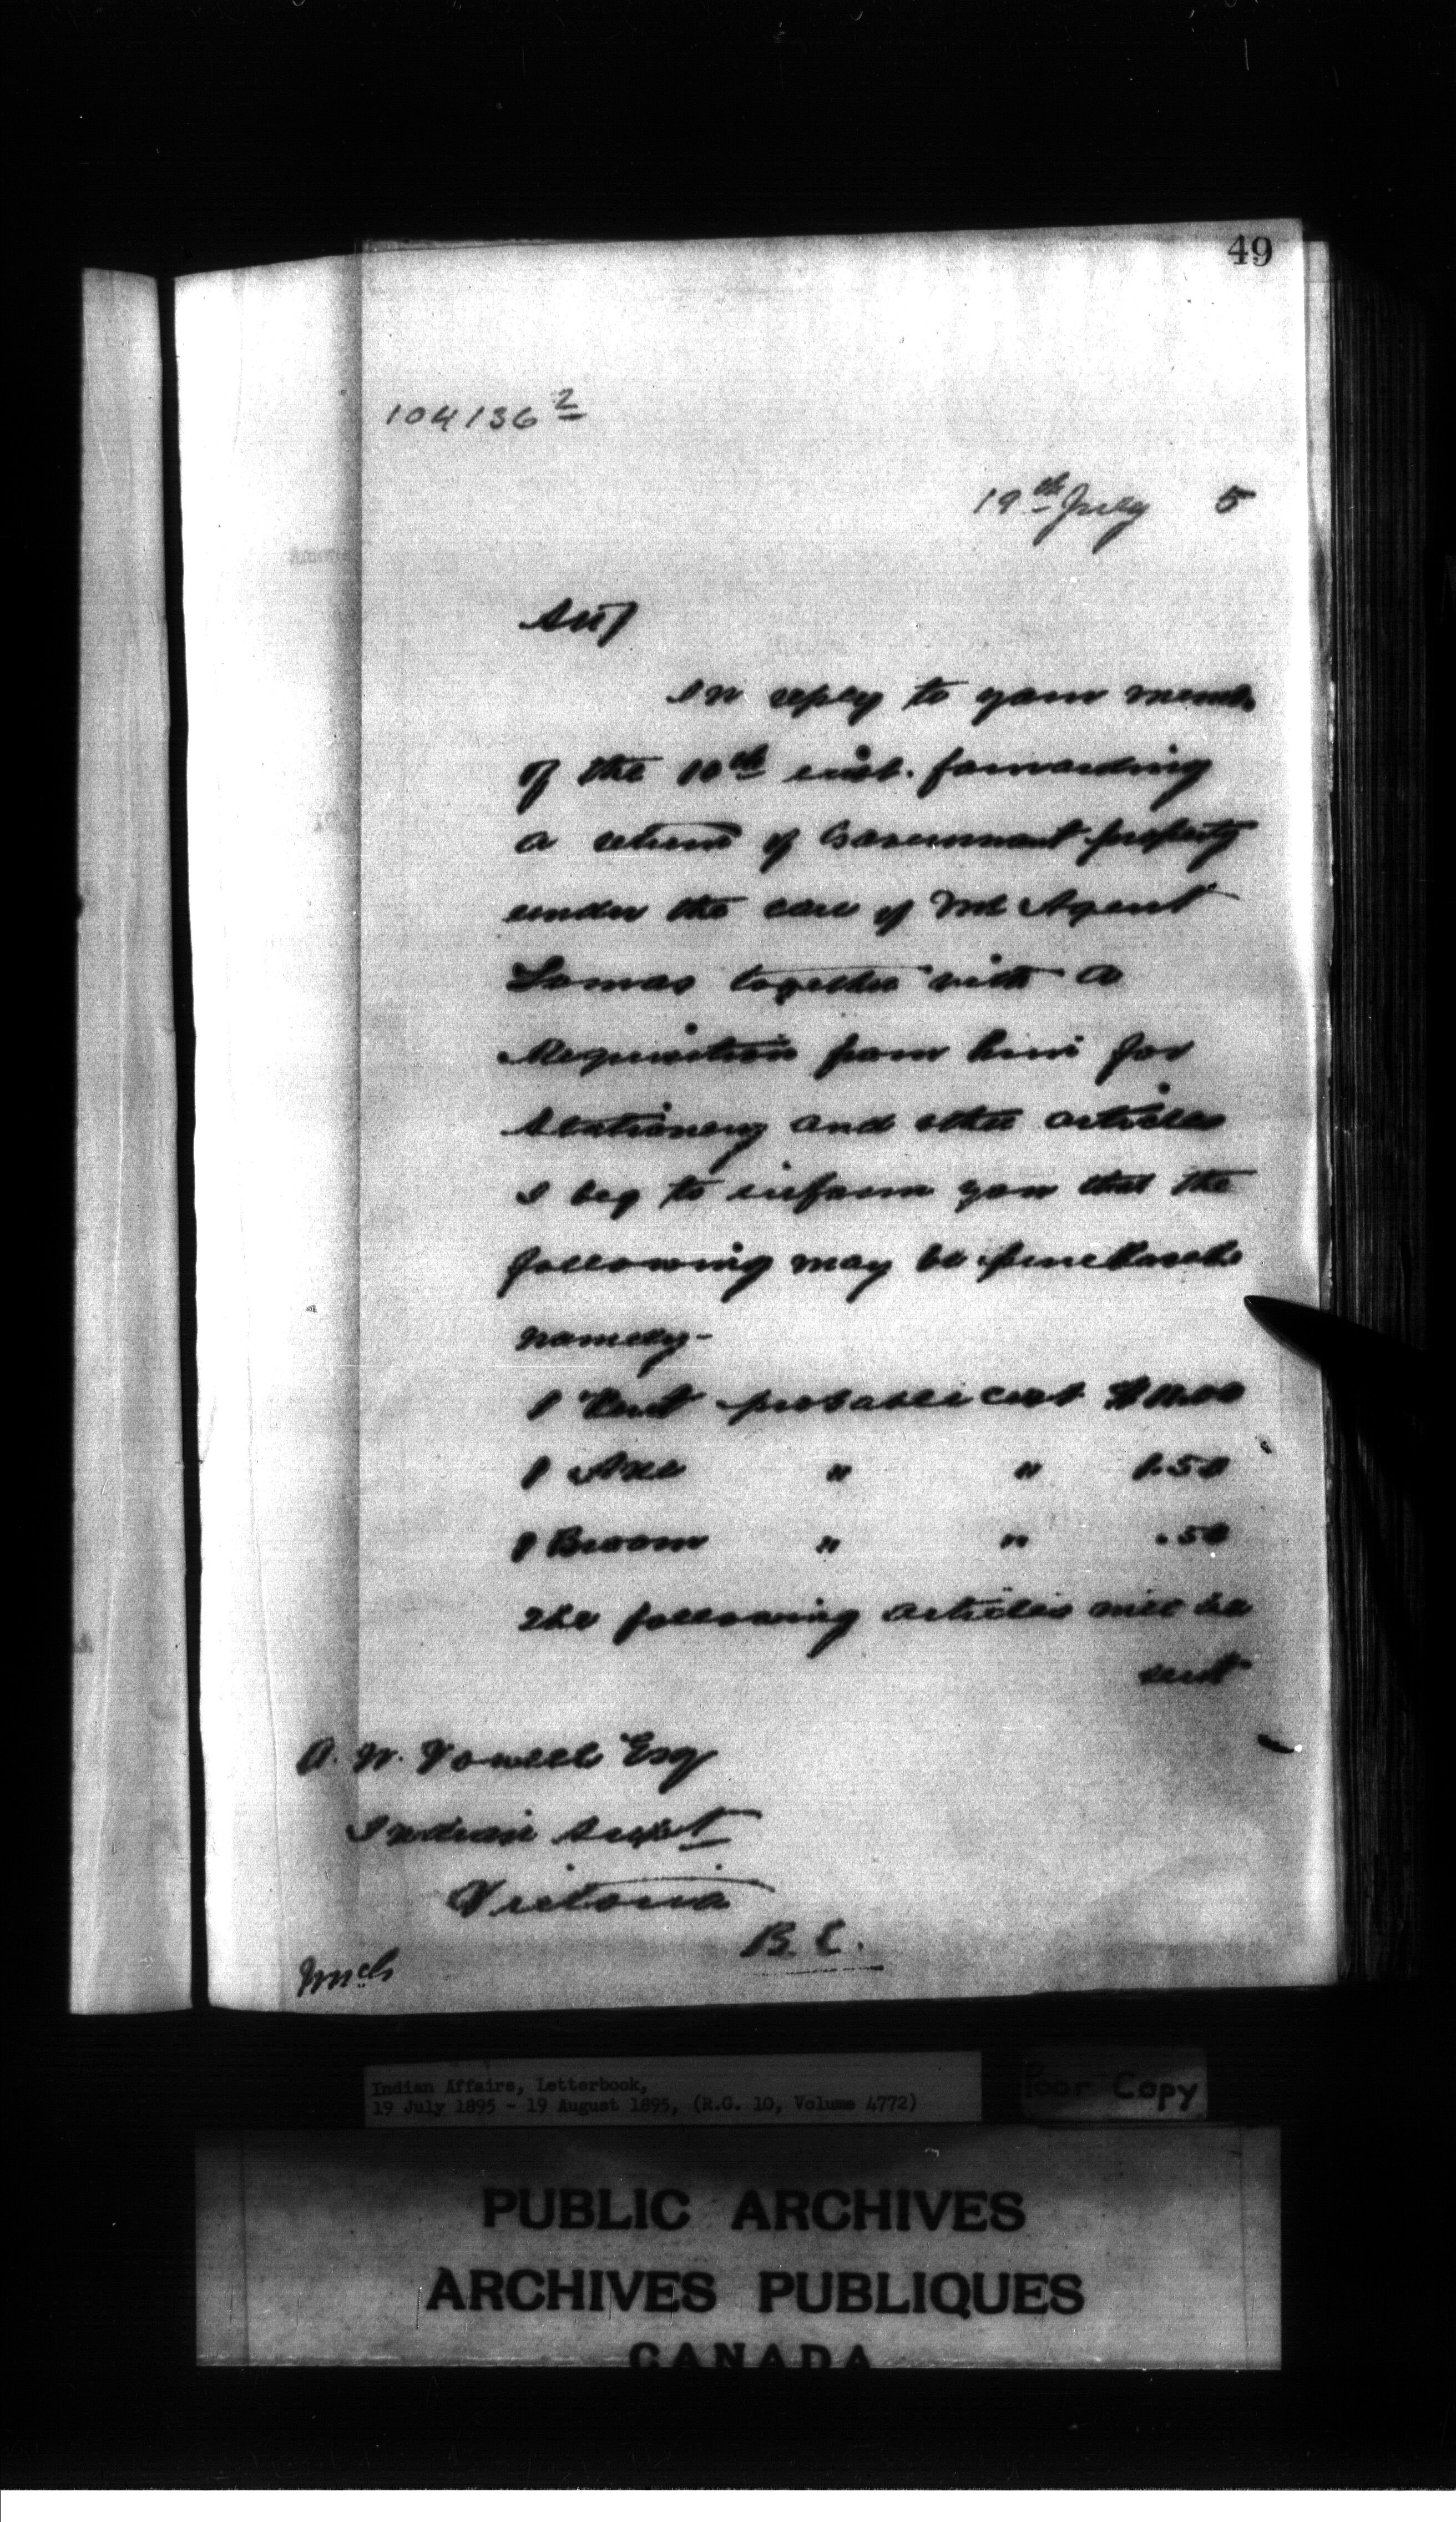 49
104136 2
19th July 5
Sir
In reply to your memo.
of the 10th inst. forwarding
a return of Government property
under the care of Mr Agent
Lomas together with a
Requisition from him for
Stationery and other articles
I beg to inform you that the
following may be purchased
namely-
1 Tent probable cost
1 Axe " " 1.50
1 Broom " " .50
The following articles will be
sent
A. W. Vowell Esq
Indian Supt
Victoria
B. C.
Indian Affairs, Letterbook,
19 July 1895 - 19 August 1895, (R.G. 10, Volume 4772)
Poor Copy
PUBLIC ARCHIVES
ARCHIVES PUBLIQUES
CANADA